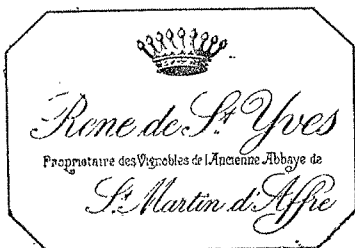 Rene de St Yves
Propriétaire des Vignobles de l'Ancienne Abbaye de
St Martin d'Affre